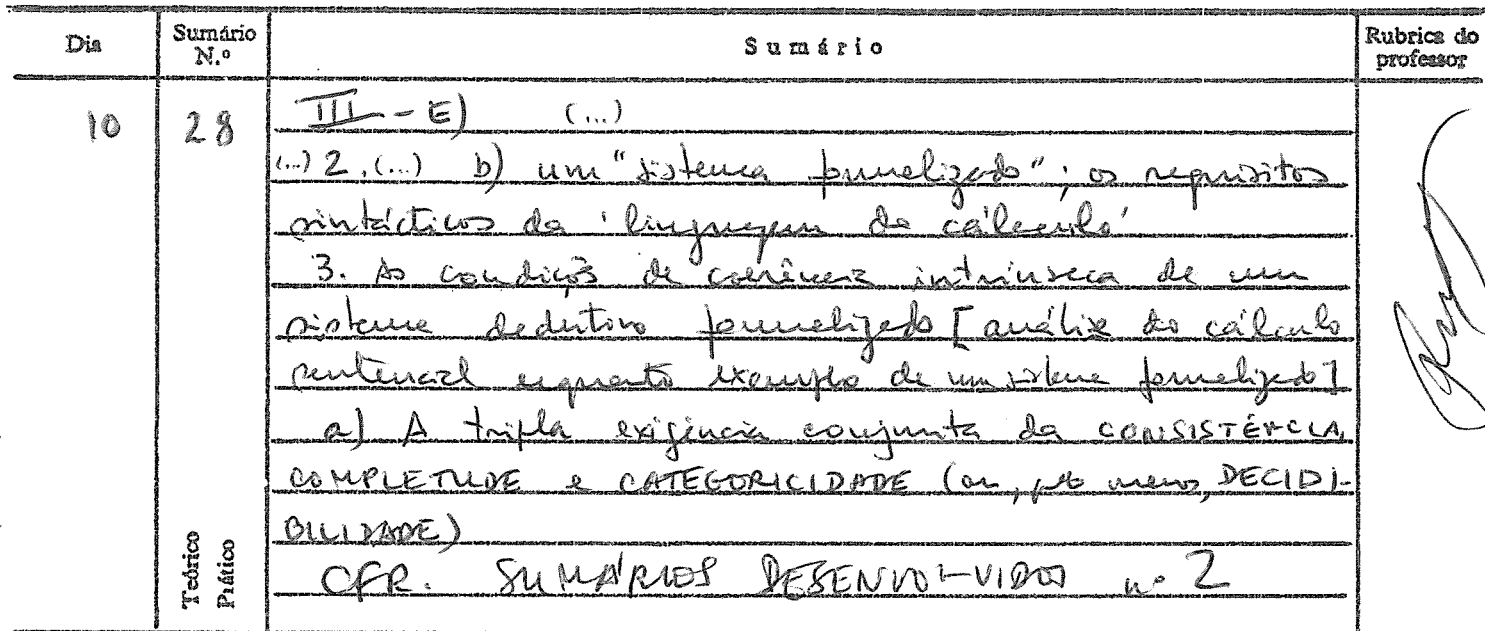 Dia
Sumário N.º
Sumário
Rubrica do professor
10
28
III - E) (...)
(...) 2. (...) b) um "sistema formalizado"; os requisitos
sintácticos da 'linguagem de cálculo'
3. As condições de coerência intrínseca de um
sistema dedutivo formalizado [análise do cálculo
sentencial enquanto exemplo de um sistema formalizado]
a) A tripla exigência conjunta da CONSISTÊNCIA,
COMPLETUDE e CATEGORICIDADE (ou, pelo menos, DECIDI-
BILIDADE)
CFR. SUMÁRIOS DESENVOLVIDOS nº 2
Teórico
Prático